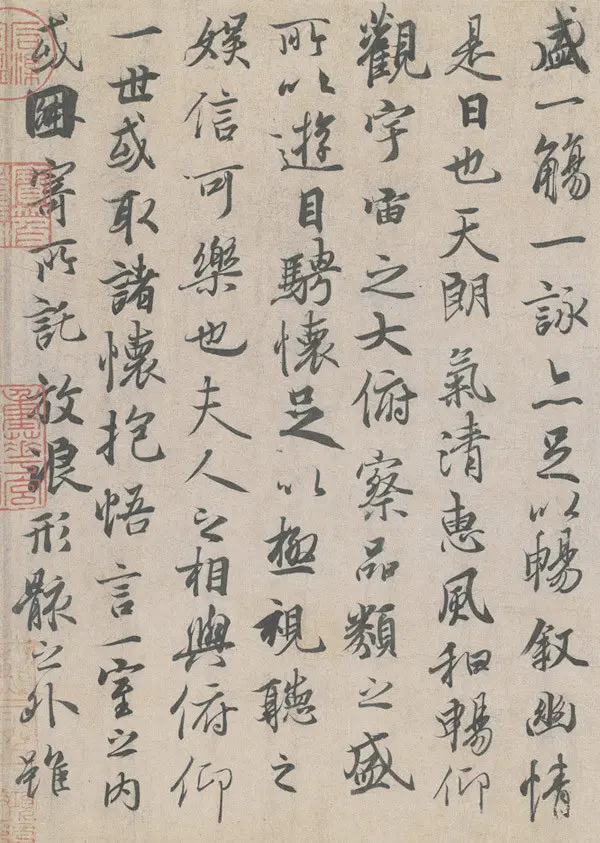 盛一觴一詠亦足以暢叙幽情
是日也天朗氣清惠風和暢仰
觀宇宙之大俯察品類之盛
所以遊目騁懷足以極視聽之
娛信可樂也夫人之相與俯仰
一世或取諸懷抱悟言一室之内
或因寄所託放浪形骸之外雖